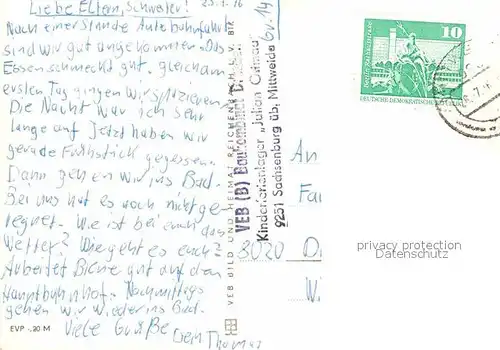 Liebe Eltern, Schwester!
Nach einer Stunde Autobahnfahrt
sind wir gut angekommen. Das
Essen schmeckt gut. gleich am
ersten Tag gingen wir spazieren.
Die Nacht war ich sehr
lange auf. Jetzt haben wir
gerade Frühstück gegessen.
Dann gehen wir ins Bad.
Bei uns hat es noch nicht ge-
regnet. Wie ist bei euch das
Wetter? Wie geht es euch?
Arbeitet Birne gut auf den
Hauptbuhnhof. Nachmittags
gehen wir wieder ins Bad.
Viele Grüße
Dein Thomas
EVP -.20 M
VEB BILD UND HEIMAT REICHENBACH I. V.
VEB (B) Baukombinat
Kinderferienlager „Julian
9251 Sachsenburg üb. Mittweida
10
DEUTSCHE DEMOKRATISCHE
An
Fa
8020 D
W.
privacy protection
Datenschutz